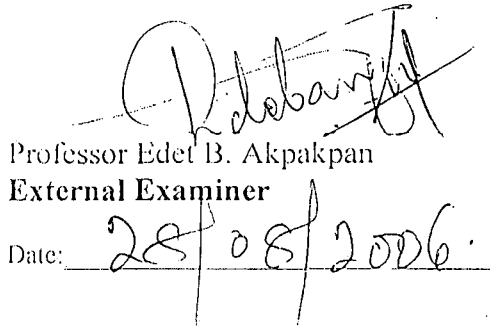 Professor Edet B. Akpakpan
External Examiner
Date: 28/08/2006.